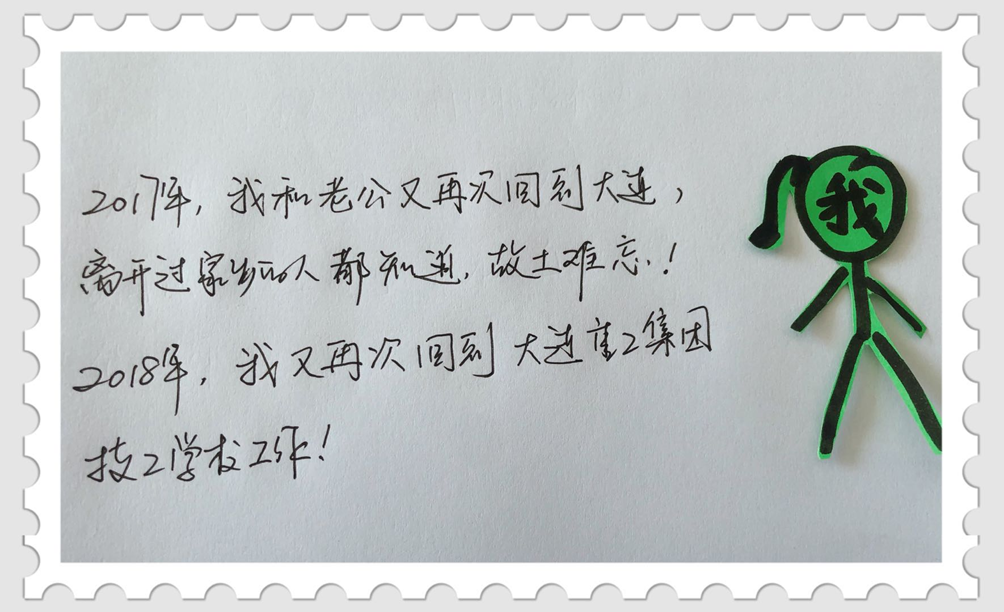 2017年，我和老公又再次回到大连，
离开过家乡的人都知道，故土难忘！
2018年，我又再次回到大连重工集团
技工学校工作！
我